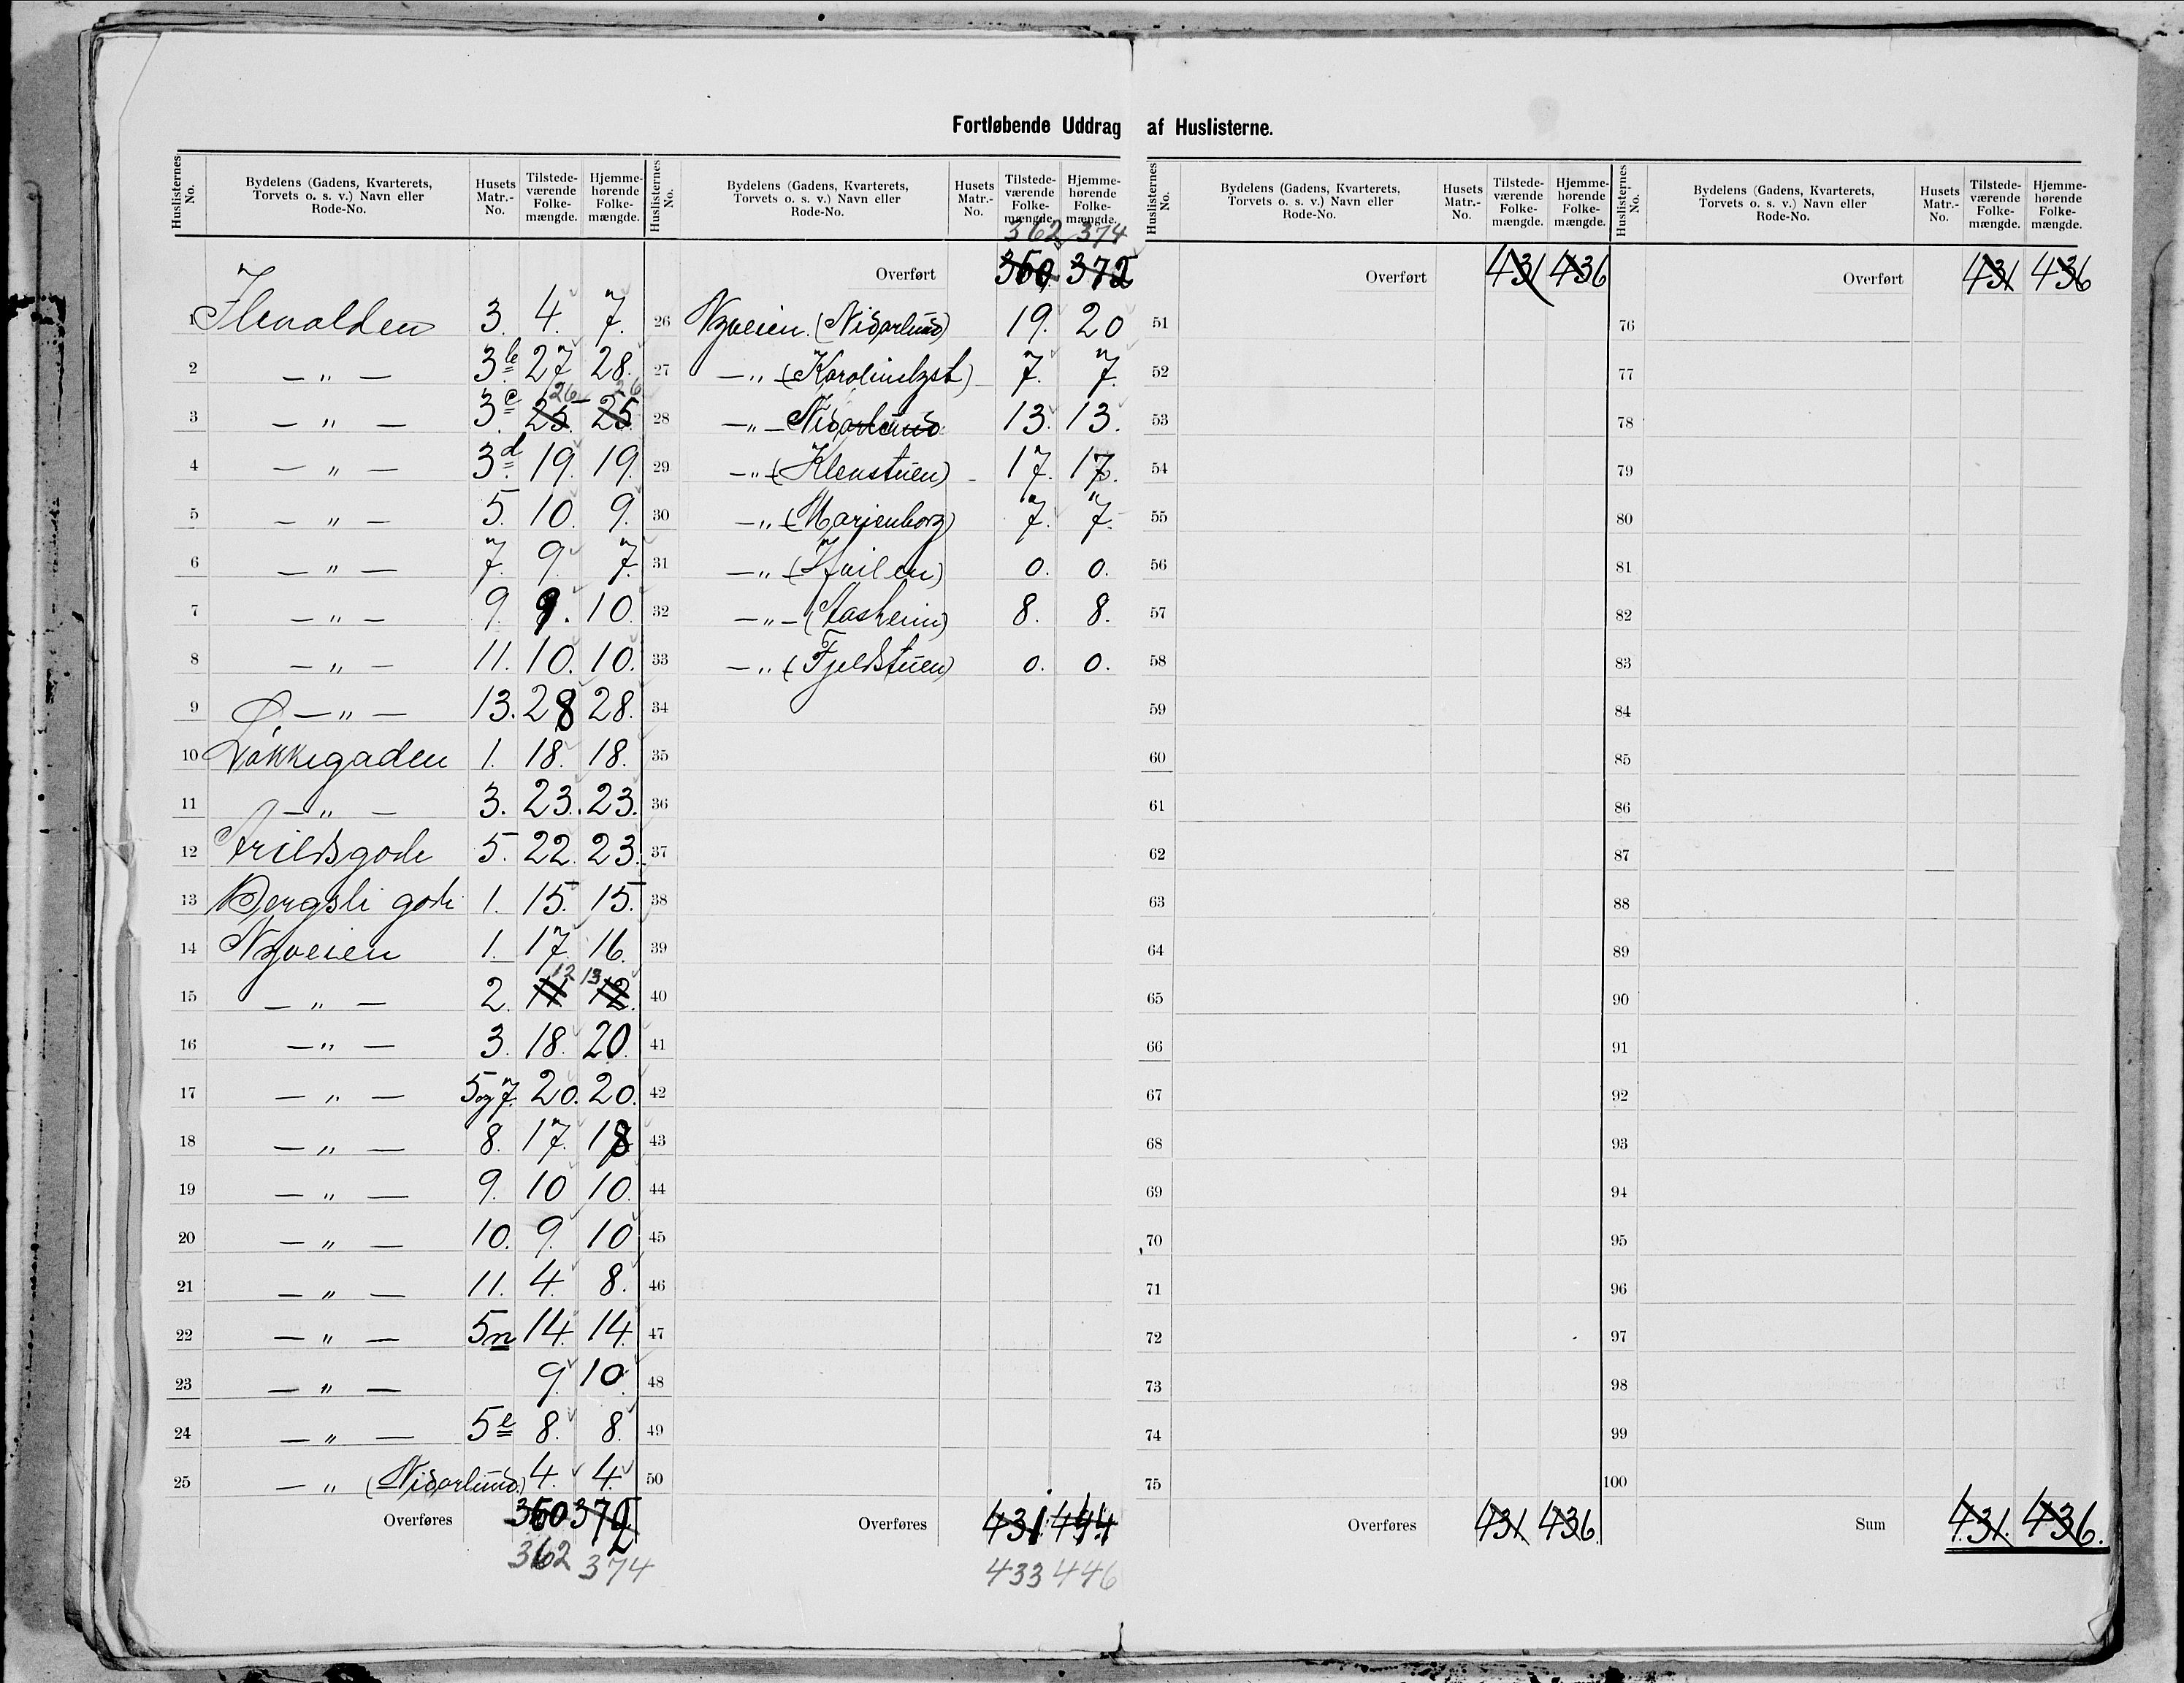 Fortløbende Uddrag af Huslisterne.
Huslisternes No. Bydelens (Gadens, Kvarterets, Torvets o. s. v.) Navn eller Rode-No. Husets Matr.-No. Tilstedeværende Folkemængde. Hjemmehørende Folkemængde.
1 Ilevolden 3. 4. 7.
2 — „ — 3b 27 28.
3 — „ — 3c 25. 26 25 26
4 — „ — 3d 19. 19.
5 — „ — 5. 10. 9.
6 — „ — 7. 9. 7.
7 — „ — 9. 9. 10.
8 — „ — 11. 10. 10.
9 — „ — 13. 28 28.
10 Løkkegaden 1. 18. 18.
11 — „ — 3. 23. 23.
12 Arildsgade 5. 22. 23.
13 Bergsli gade 1. 15. 15.
14 Nyveien 1. 17. 16.
15 — „ — 2. 11 12 12. 13
16 — „ — 3. 18. 20.
17 — „ — 5 og 7. 20. 20.
18 — „ — 8. 17. 18
19 — „ — 9. 10 10.
20 — „ — 10. 9. 10
21 — „ — 11. 4. 8.
22 — „ — 5n 14. 14.
23 — „ — 9. 10.
24 — „ — 5e 8. 8.
25 — „ (Nidarlund.) 4. 4.
Overføres 360 372
362 374
Huslisternes No. Bydelens (Gadens, Kvarterets, Torvets o. s. v.) Navn eller Rode-No. Husets Matr.-No. Tilstedeværende Folkemængde. Hjemmehørende Folkemængde.
362 374
Overført 360. 372
26 Nyveien. (Nidarlund) 19. 20
27 — „ — (Karolinelyst) 7. 7.
28 — „ — Nidarlund 13. 13.
29 — „ — (Klenstuen) 17. 17.
30 — „ — (Marienborg) 7. 7.
31 — „ — (Hvilen) 0. 0.
32 — „ — (Aasheim) 8. 8.
33 — „ — (Fjeldstuen) 0. 0.
34
35
36
37
38
39
40
41
42
43
44
45
46
47
48
49
50
Overføres 431 444
433 446
Huslisternes No. Bydelens (Gadens, Kvarterets, Torvets o. s. v.) Navn eller Rode-No. Husets Matr.-No. Tilstedeværende Folkemængde. Hjemmehørende Folkemængde.
Overført 431 436
51
52
53
54
55
56
57
58
59
60
61
62
63
64
65
66
67
68
69
70
71
72
73
74
75
Overføres 431. 436.
Huslisternes No. Bydelens (Gadens, Kvarterets, Torvets o. s. v.) Navn eller Rode-No. Husets Matr.-No. Tilstedeværende Folkemængde. Hjemmehørende Folkemængde.
Overført 431 436
76
77
78
79
80
81
82
83
84
85
86
87
88
89
90
91
92
93
94
95
96
97
98
99
100
Sum 431. 436.